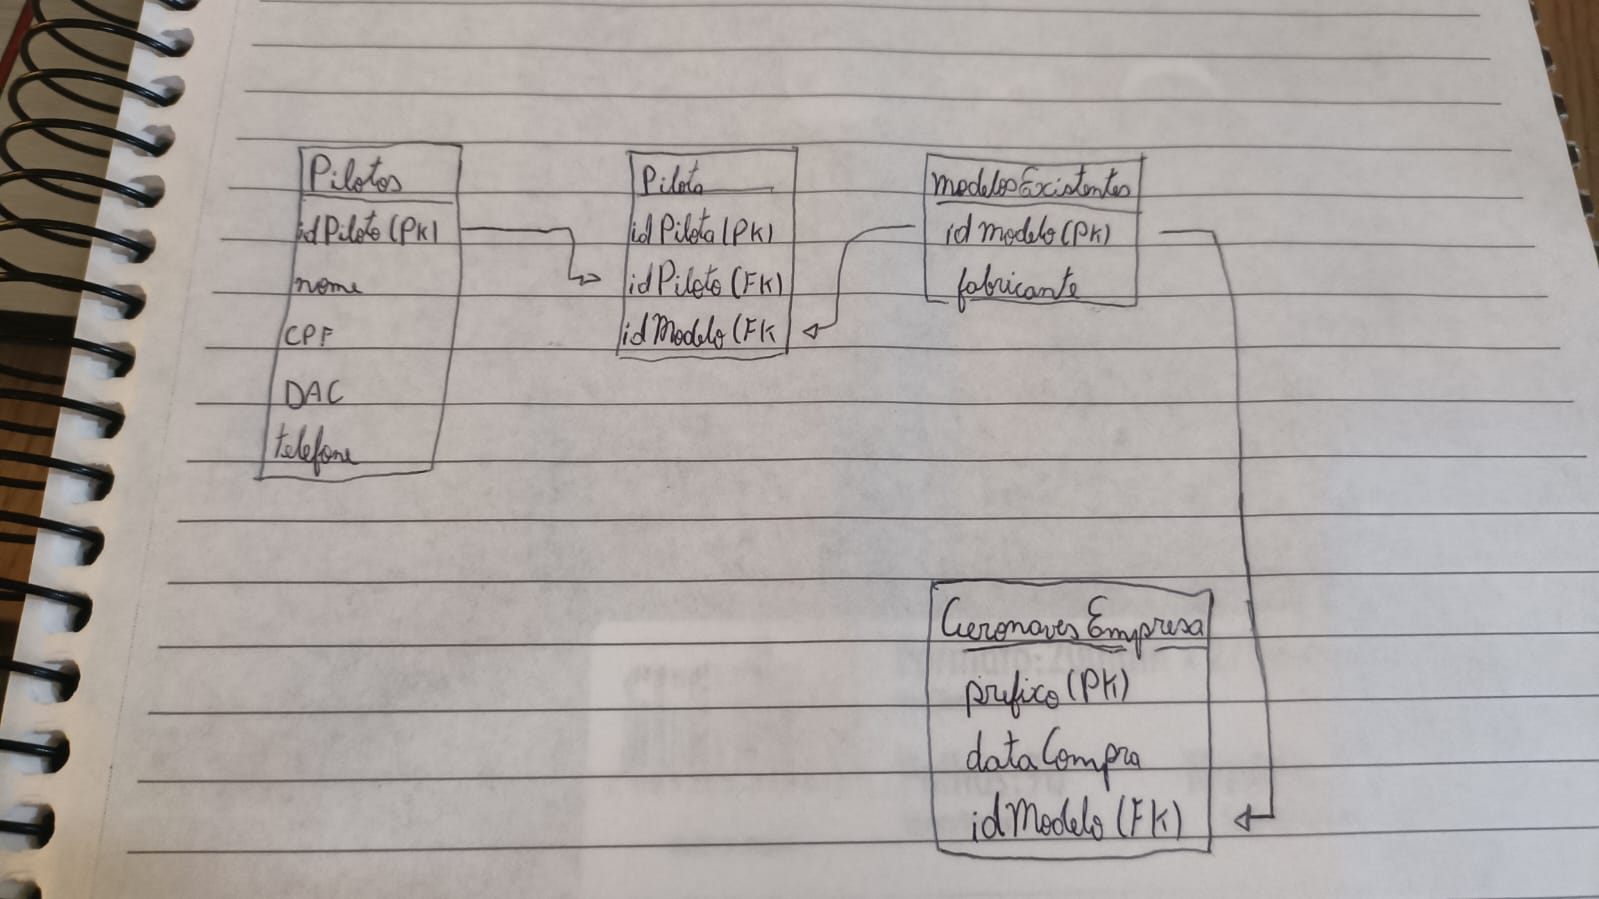 Pilotos
idPiloto (PK)
nome
CPF
DAC
telefone
Pilota
idPilota (PK)
idPiloto (FK)
idModelo (FK
modelosExistentes
idmodelo (PK)
fabricante
AeronavesEmpresa
prefixo (PK)
dataCompra
idModelo (FK)